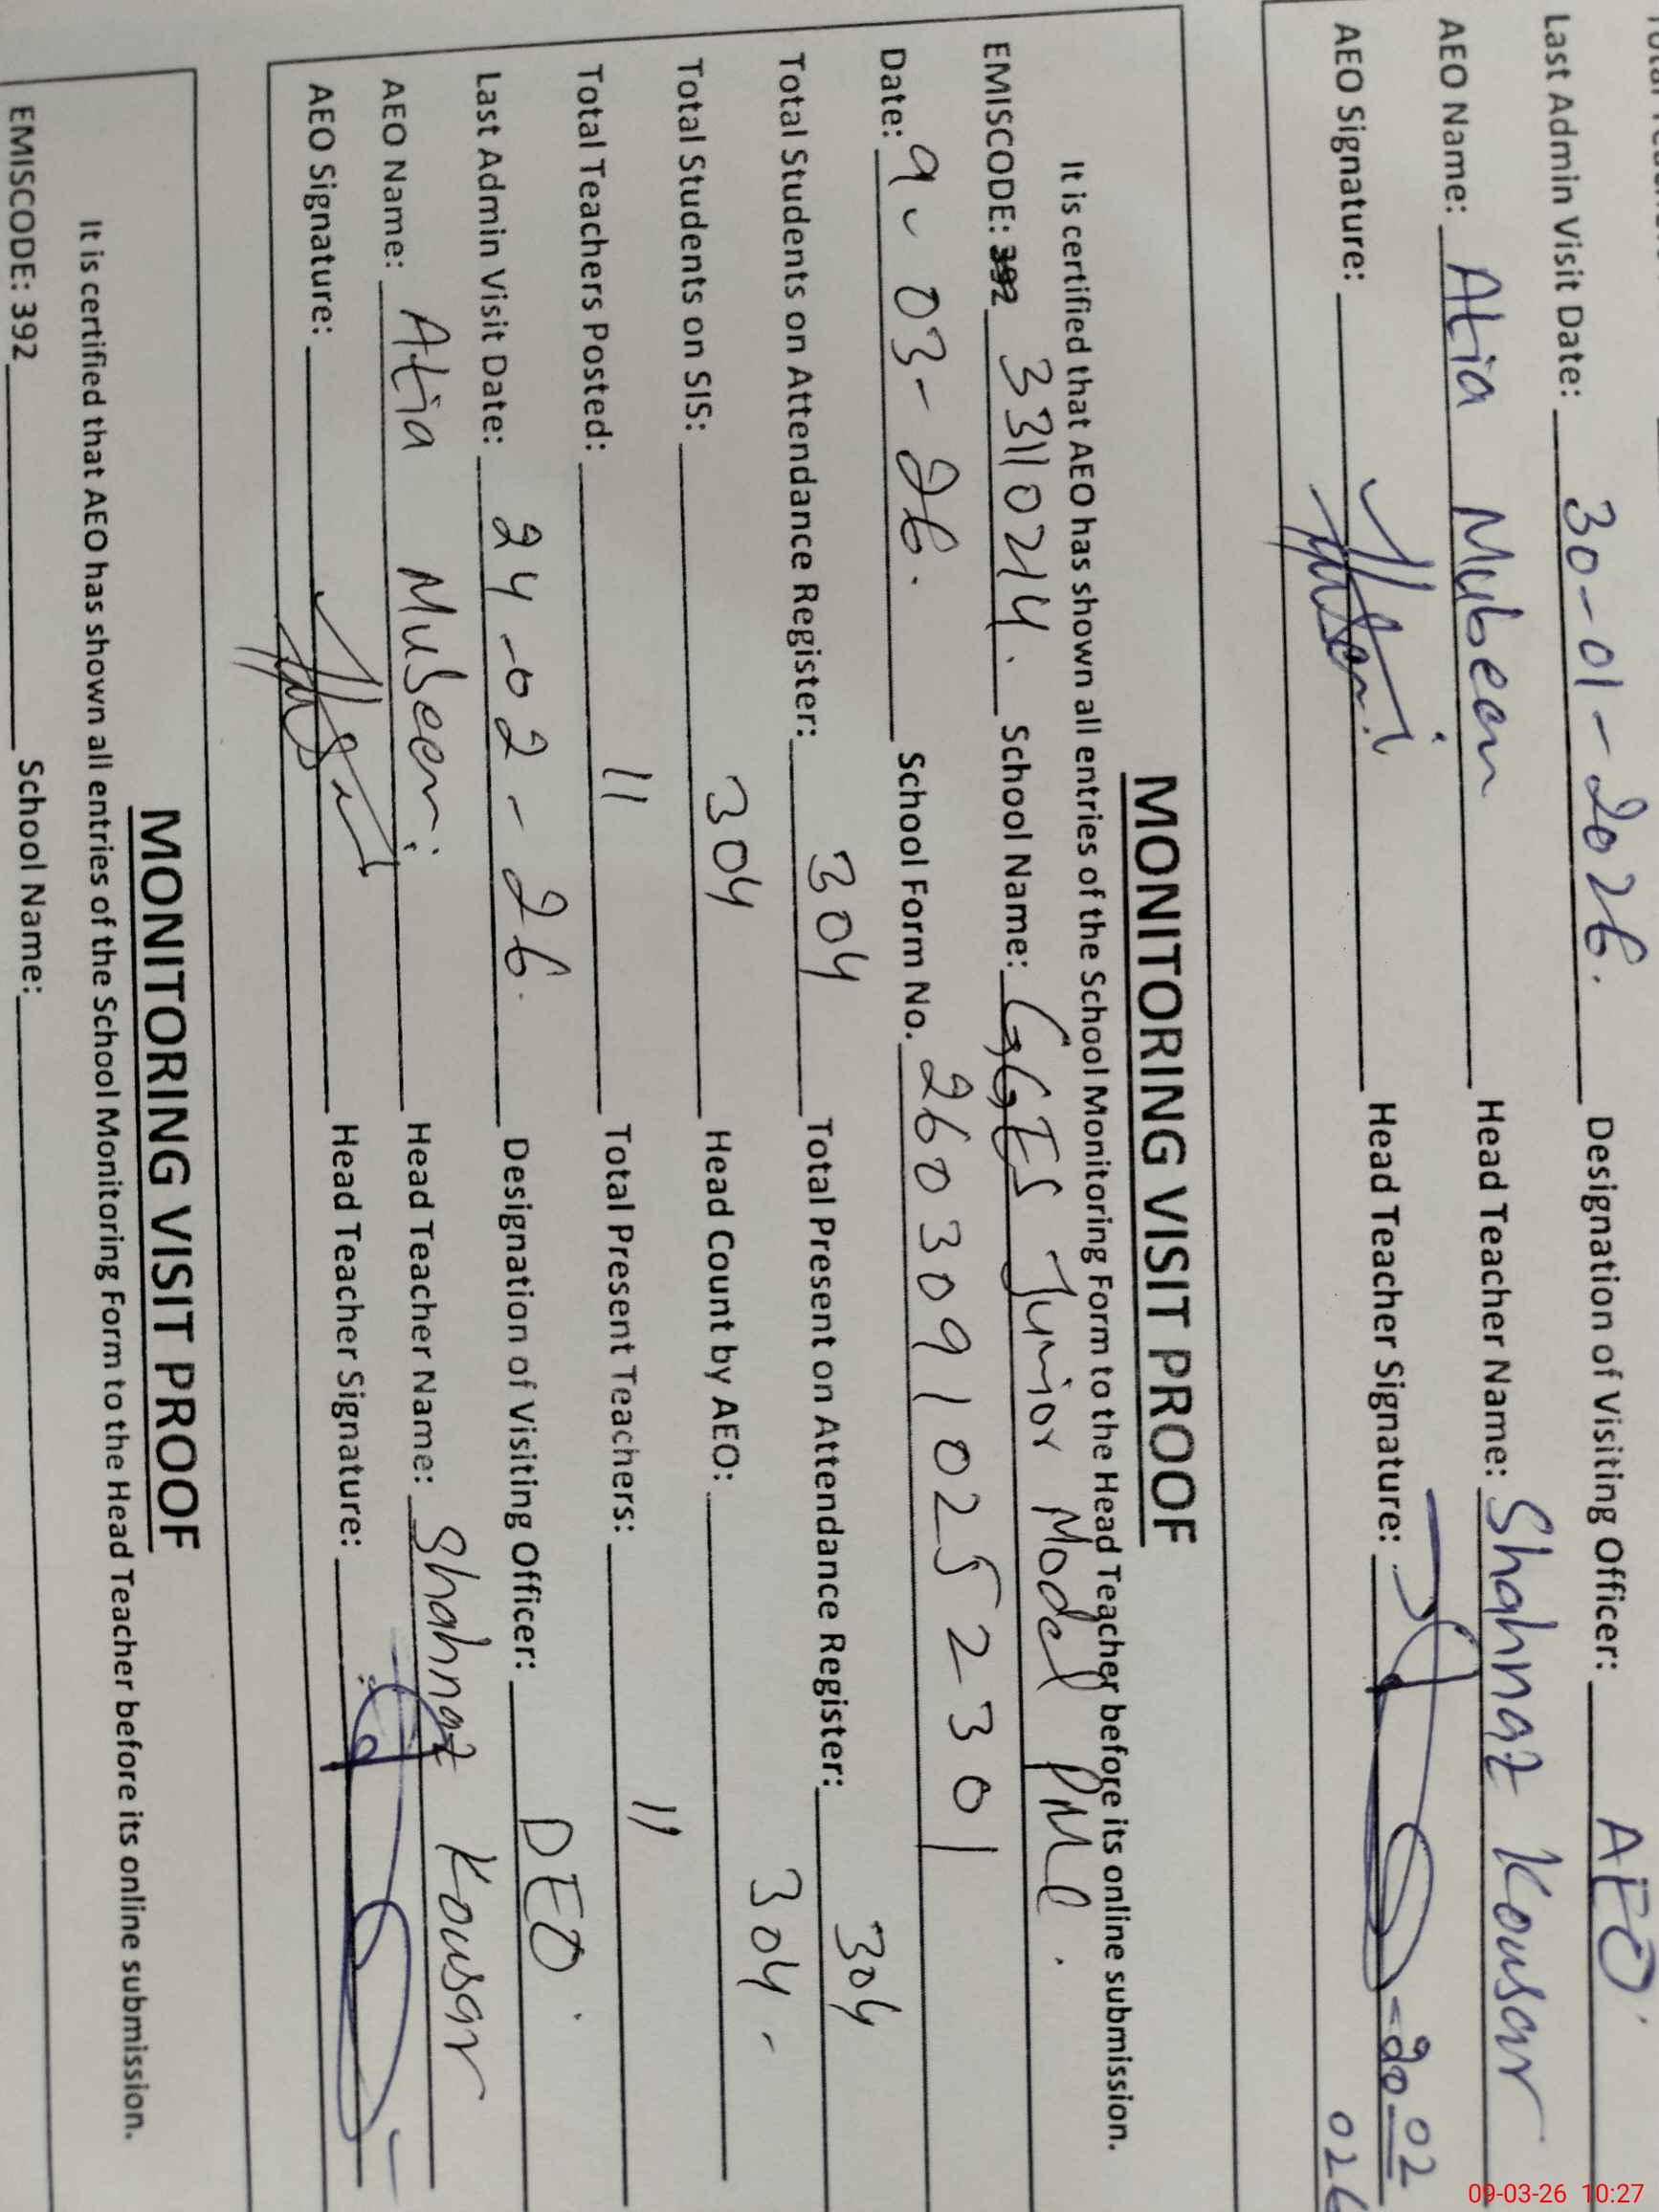 Last Admin Visit Date: 30-01-2026. Designation of Visiting Officer: AEO
AEO Name: Atia Mubeen Head Teacher Name: Shahnaz Kousar
AEO Signature: Head Teacher Signature: -20-02
026
MONITORING VISIT PROOF
It is certified that AEO has shown all entries of the School Monitoring Form to the Head Teacher before its online submission.
EMISCODE: 392 33110214. School Name: GGES Junior Model PMC.
Date: 9-03-26. School Form No. 26030910252301
Total Students on Attendance Register: 304 Total Present on Attendance Register: 304
Total Students on SIS: 304 Head Count by AEO: 304-
Total Teachers Posted: 11 Total Present Teachers: 11
Last Admin Visit Date: 24-02-26. Designation of Visiting Officer: DEO.
AEO Name: Atia Mubeen Head Teacher Name: Shahnaz Kousar
AEO Signature: Head Teacher Signature:
MONITORING VISIT PROOF
It is certified that AEO has shown all entries of the School Monitoring Form to the Head Teacher before its online submission.
EMISCODE: 392 School Name:
09-03-26 10:27